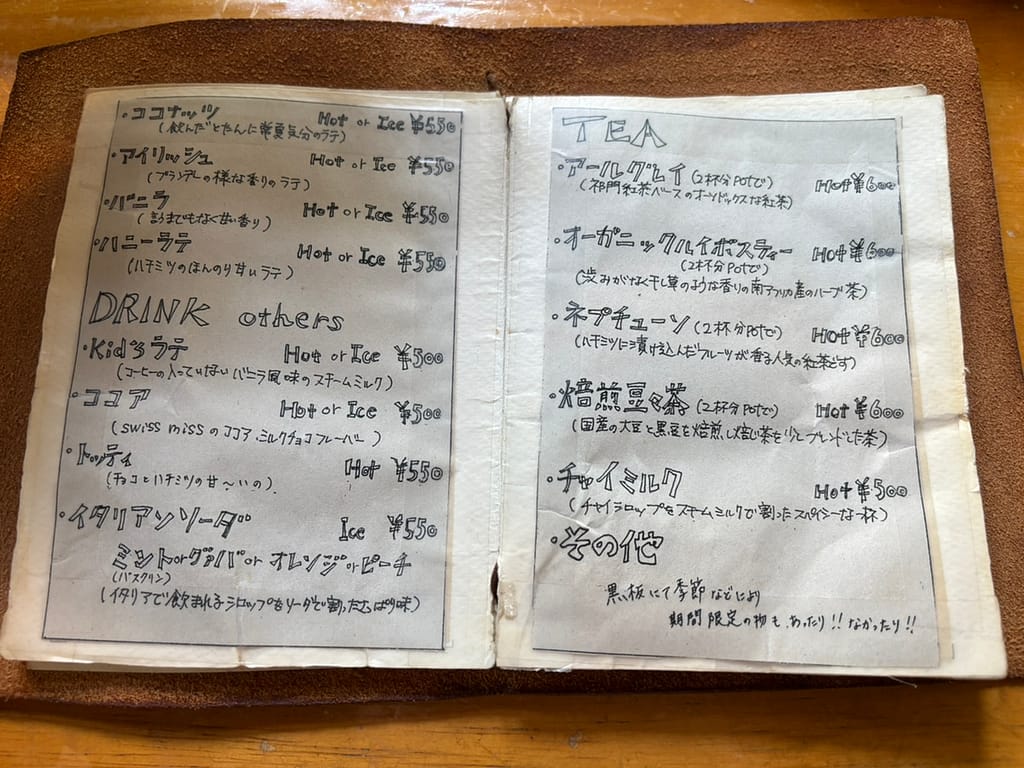 ・ココナッツ Hot or Ice ¥550
(飲んだとたんに常夏気分のラテ)
・アイリッシュ Hot or Ice ¥550
(ブランデーの様な香りのラテ)
・バニラ Hot or Ice ¥550
(言うまでもなく甘い香り)
・ハニーラテ Hot or Ice ¥550
(ハチミツのほんのり甘いラテ)
DRINK others
・Kid'sラテ Hot or Ice ¥500
(コーヒーの入っていないバニラ風味のスチームミルク)
・ココア Hot or Ice ¥500
(swiss missのココア.ミルクチョコフレーバー)
・トッティ Hot ¥550
(チョコとハチミツの甘〜いの)
・イタリアンソーダ Ice ¥550
ミントorグァバor オレンジorピーチ
(バスクリン)
(イタリアで飲まれるシロップをソーダで割ったさっぱり味)
TEA
・アールグレイ(2杯分Potで) Hot¥600
(祁門紅茶ベースのオーソドックスな紅茶)
・オーガニックルイボスティー Hot¥600
(2杯分Potで)
(渋みがなく干し草のような香りの南アフリカ産のハーブ茶)
・ネプチューン(2杯分Potで) Hot¥600
(ハチミツに漬け込んだフルーツが香る人気の紅茶どす)
・焙煎豆々茶(2杯分Potで) Hot¥600
(国産の大豆と黒豆を焙煎し焙じ茶を少しブレンドした茶)
・チャイミルク Hot¥500
(チャイシロップをスチームミルクで割ったスパイシーな一杯)
・その他
黒板にて季節などにより
期間限定の物も.あったり!!なかったり!!